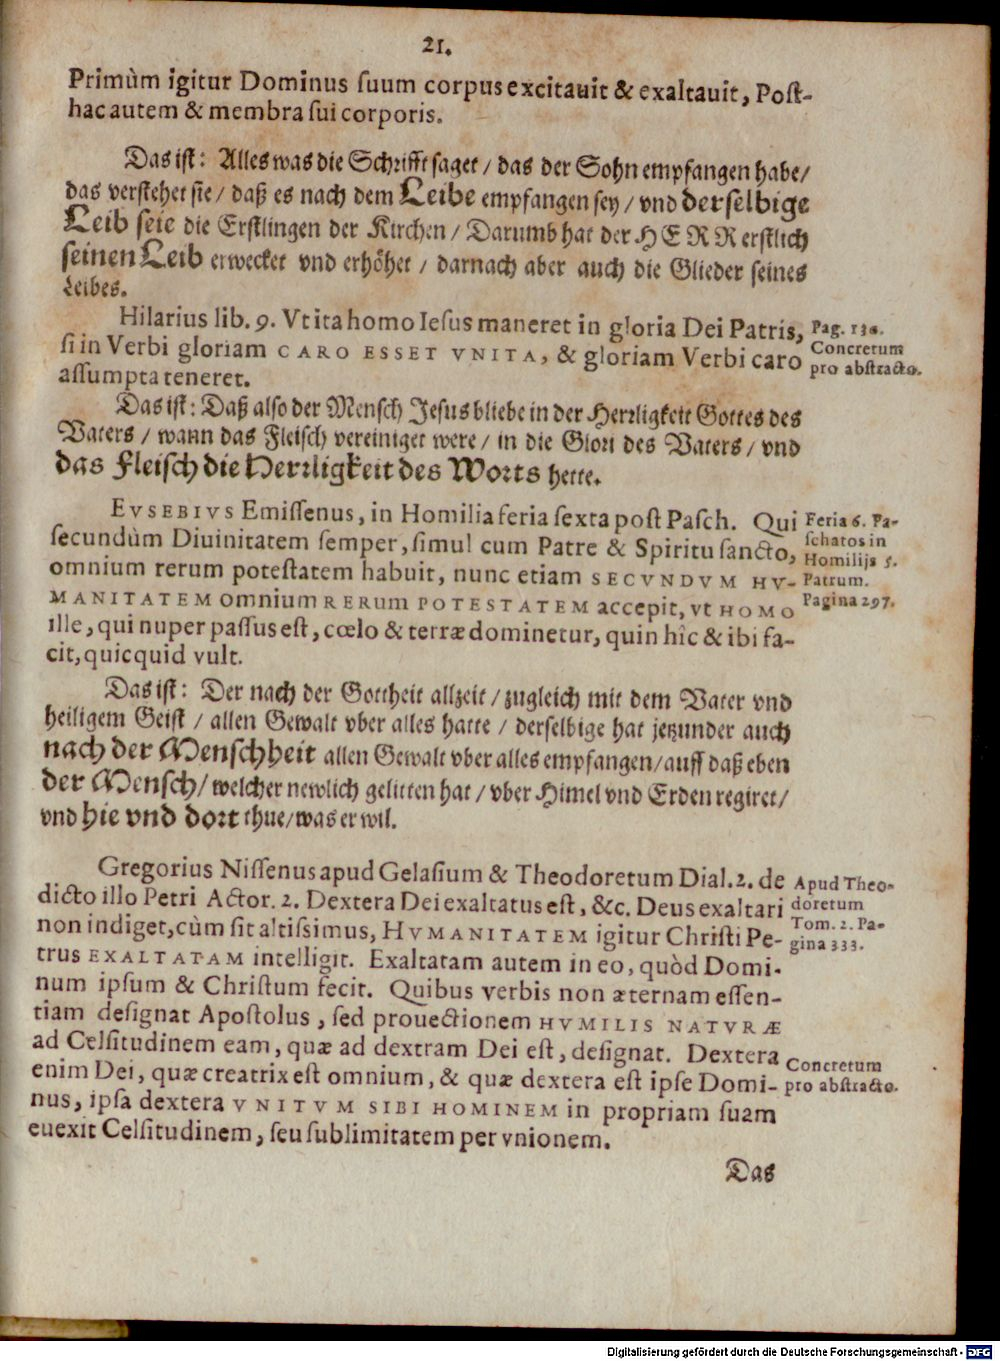 21.
Primùm igitur Dominus suum corpus excitauit & exaltauit, Post-
hac autem & membra sui corporis.
Das ist: Alles was die Schrifft saget / das der Sohn empfangen habe /
das verstehet sie / daß es nach dem Leibe empfangen sey / vnd derselbige
Leib seie die Erstlingen der Kirchen / Darumb hat der HERR erstlich
seinen Leib erwecket vnd erhöhet / darnach aber auch die Glieder seines
Leibes.
Hilarius lib. 9. Vt ita homo Iesus maneret in gloria Dei Patris,
si in Verbi gloriam CARO ESSET VNITA, & gloriam Verbi caro
assumpta teneret.
Pag. 130.
Concretum
pro abstracto.
Das ist: Daß also der Mensch Jesus bliebe in der Herrligkeit Gottes des
Vaters / wann das Fleisch vereiniget were / in die Glori des Vaters / vnd
das Fleisch die Herrligkeit des Worts hette.
EVSEBIVS Emissenus, in Homilia feria sexta post Pasch. Qui
secundùm Diuinitatem semper, simul cum Patre & Spiritu sancto,
omnium rerum potestatem habuit, nunc etiam SECVNDVM HV-
MANITATEM omnium RERum POTESTATEM accepit, vt HOMO
ille, qui nuper passus est, cœlo & terræ dominetur, quin hîc & ibi fa-
cit, quicquid vult.
Feria 6. Pa-
schatos in
Homilijs 5.
Patrum.
Pagina 297.
Das ist: Der nach der Gottheit allzeit / zugleich mit dem Vater vnd
heiligem Geist / allen Gewalt vber alles hatte / derselbige hat jetzunder auch
nach der Menschheit allen Gewalt vber alles empfangen / auff daß eben
der Mensch / welcher newlich gelitten hat / vber Himel vnd Erden regiret /
vnd hie vnd dort thue / was er wil.
Gregorius Nissenus apud Gelasium & Theodoretum Dial. 2. de
dicto illo Petri Actor. 2. Dextera Dei exaltatus est, &c. Deus exaltari
non indiget, cùm sit altissimus, HVMANITATEM igitur Christi Pe-
trus EXALTATAM intelligit. Exaltatam autem in eo, quòd Domi-
num ipsum & Christum fecit. Quibus verbis non æternam essen-
tiam designat Apostolus, sed prouectionem HVMILIS NATVRÆ
ad Celsitudinem eam, quæ ad dextram Dei est, designat. Dextera
enim Dei, quæ creatrix est omnium, & quæ dextera est ipse Domi-
nus, ipsa dextera VNITVM SIBI HOMINEM in propriam suam
euexit Celsitudinem, seu sublimitatem per vnionem.
Apud Theo-
doretum
Tom. 2. Pa-
gina 333.
Concretum
pro abstracto.
Das
Digitalisierung gefördert durch die Deutsche Forschungsgemeinschaft - DFG